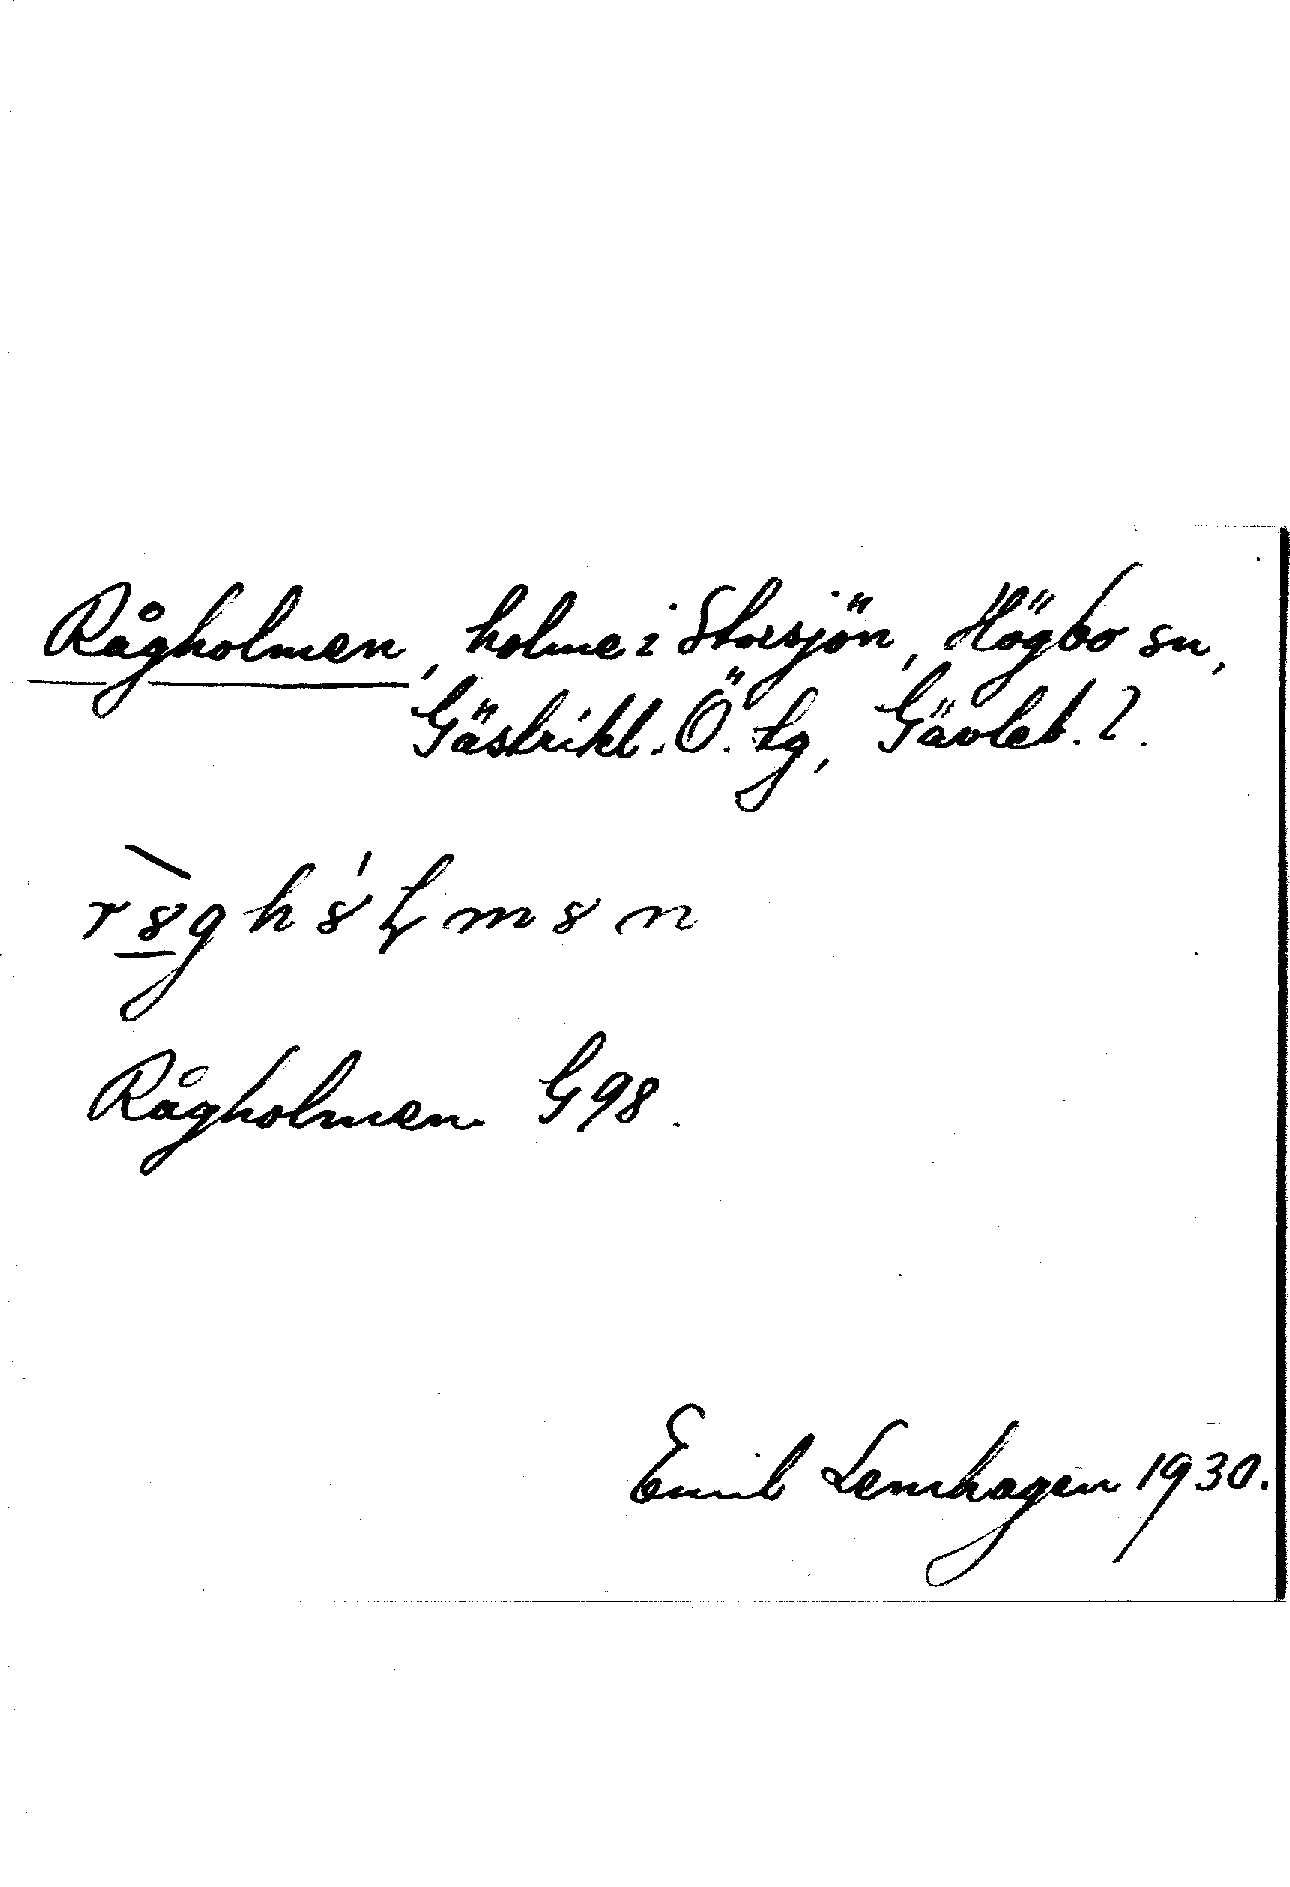 Rågholmen, holme i Storsjön, Högbo sn,
Gästrikl. Ö. tg, Gävleb. l.
Rågholmen G98.
Emil Lemhagen 1930.